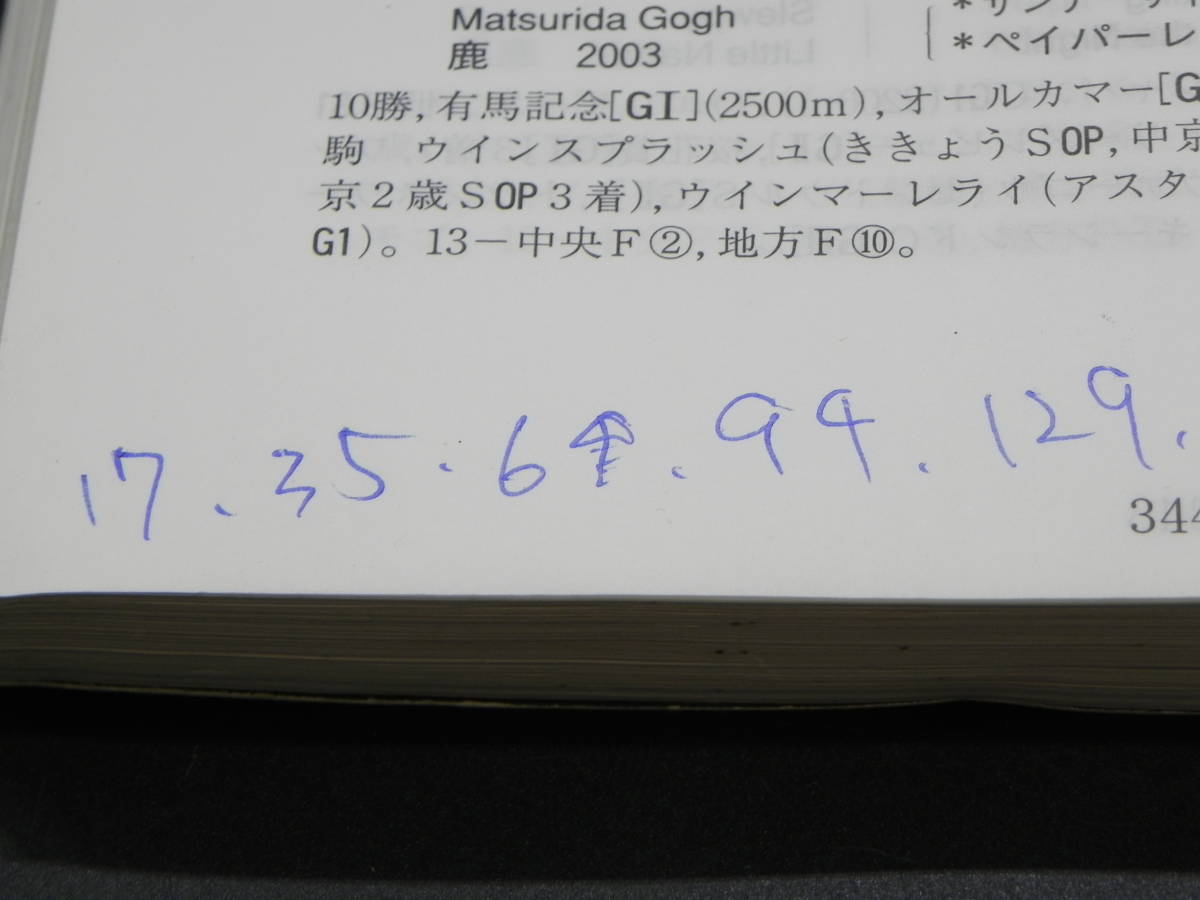 Matsurida Gogh
鹿 2003
*サンデーサイ
*ペイパーレ
10勝, 有馬記念[GI](2500m), オールカマー[G
駒 ウインスプラッシュ(ききょうSOP, 中京
京2歳SOP3着), ウインマーレライ(アスタ
G1)。13-中央F②, 地方F⑩。
17. 35. 6 . 94. 129.
344